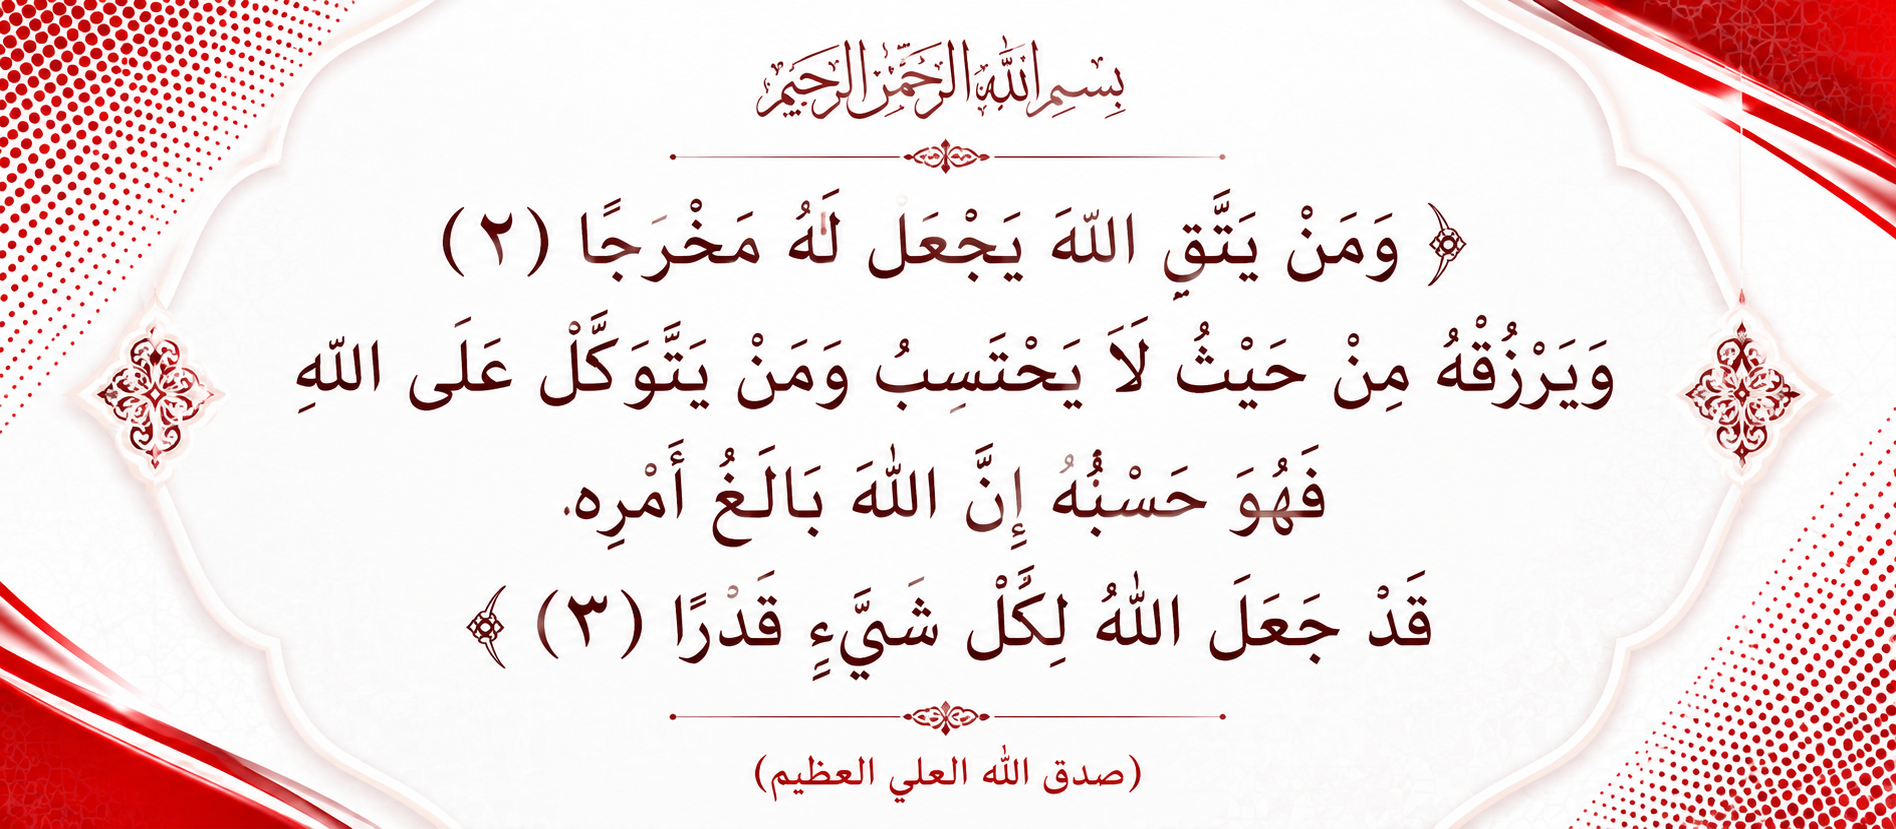 بِسْمِ اللهِ الرَّحْمٰنِ الرَّحِيْمِ
﴿ وَمَنْ يَتَّقِ اللّهَ يَجْعَل لَهُ مَخْرَجًا (٢)
وَيَرْزُقْهُ مِنْ حَيْثُ لَا يَحْتَسِبُ وَمَنْ يَتَّوَكَّلْ عَلَى اللّهِ
فَهُوَ حَسْبُنُهُ إِنَّ اللهَ بَالَغُ أَمْرِه.
قَدْ جَعَلَ اللهُ لِكَلْ شَيَّءٍ قَدْرًا (٣) ﴾
(صدق الله العلي العظيم)